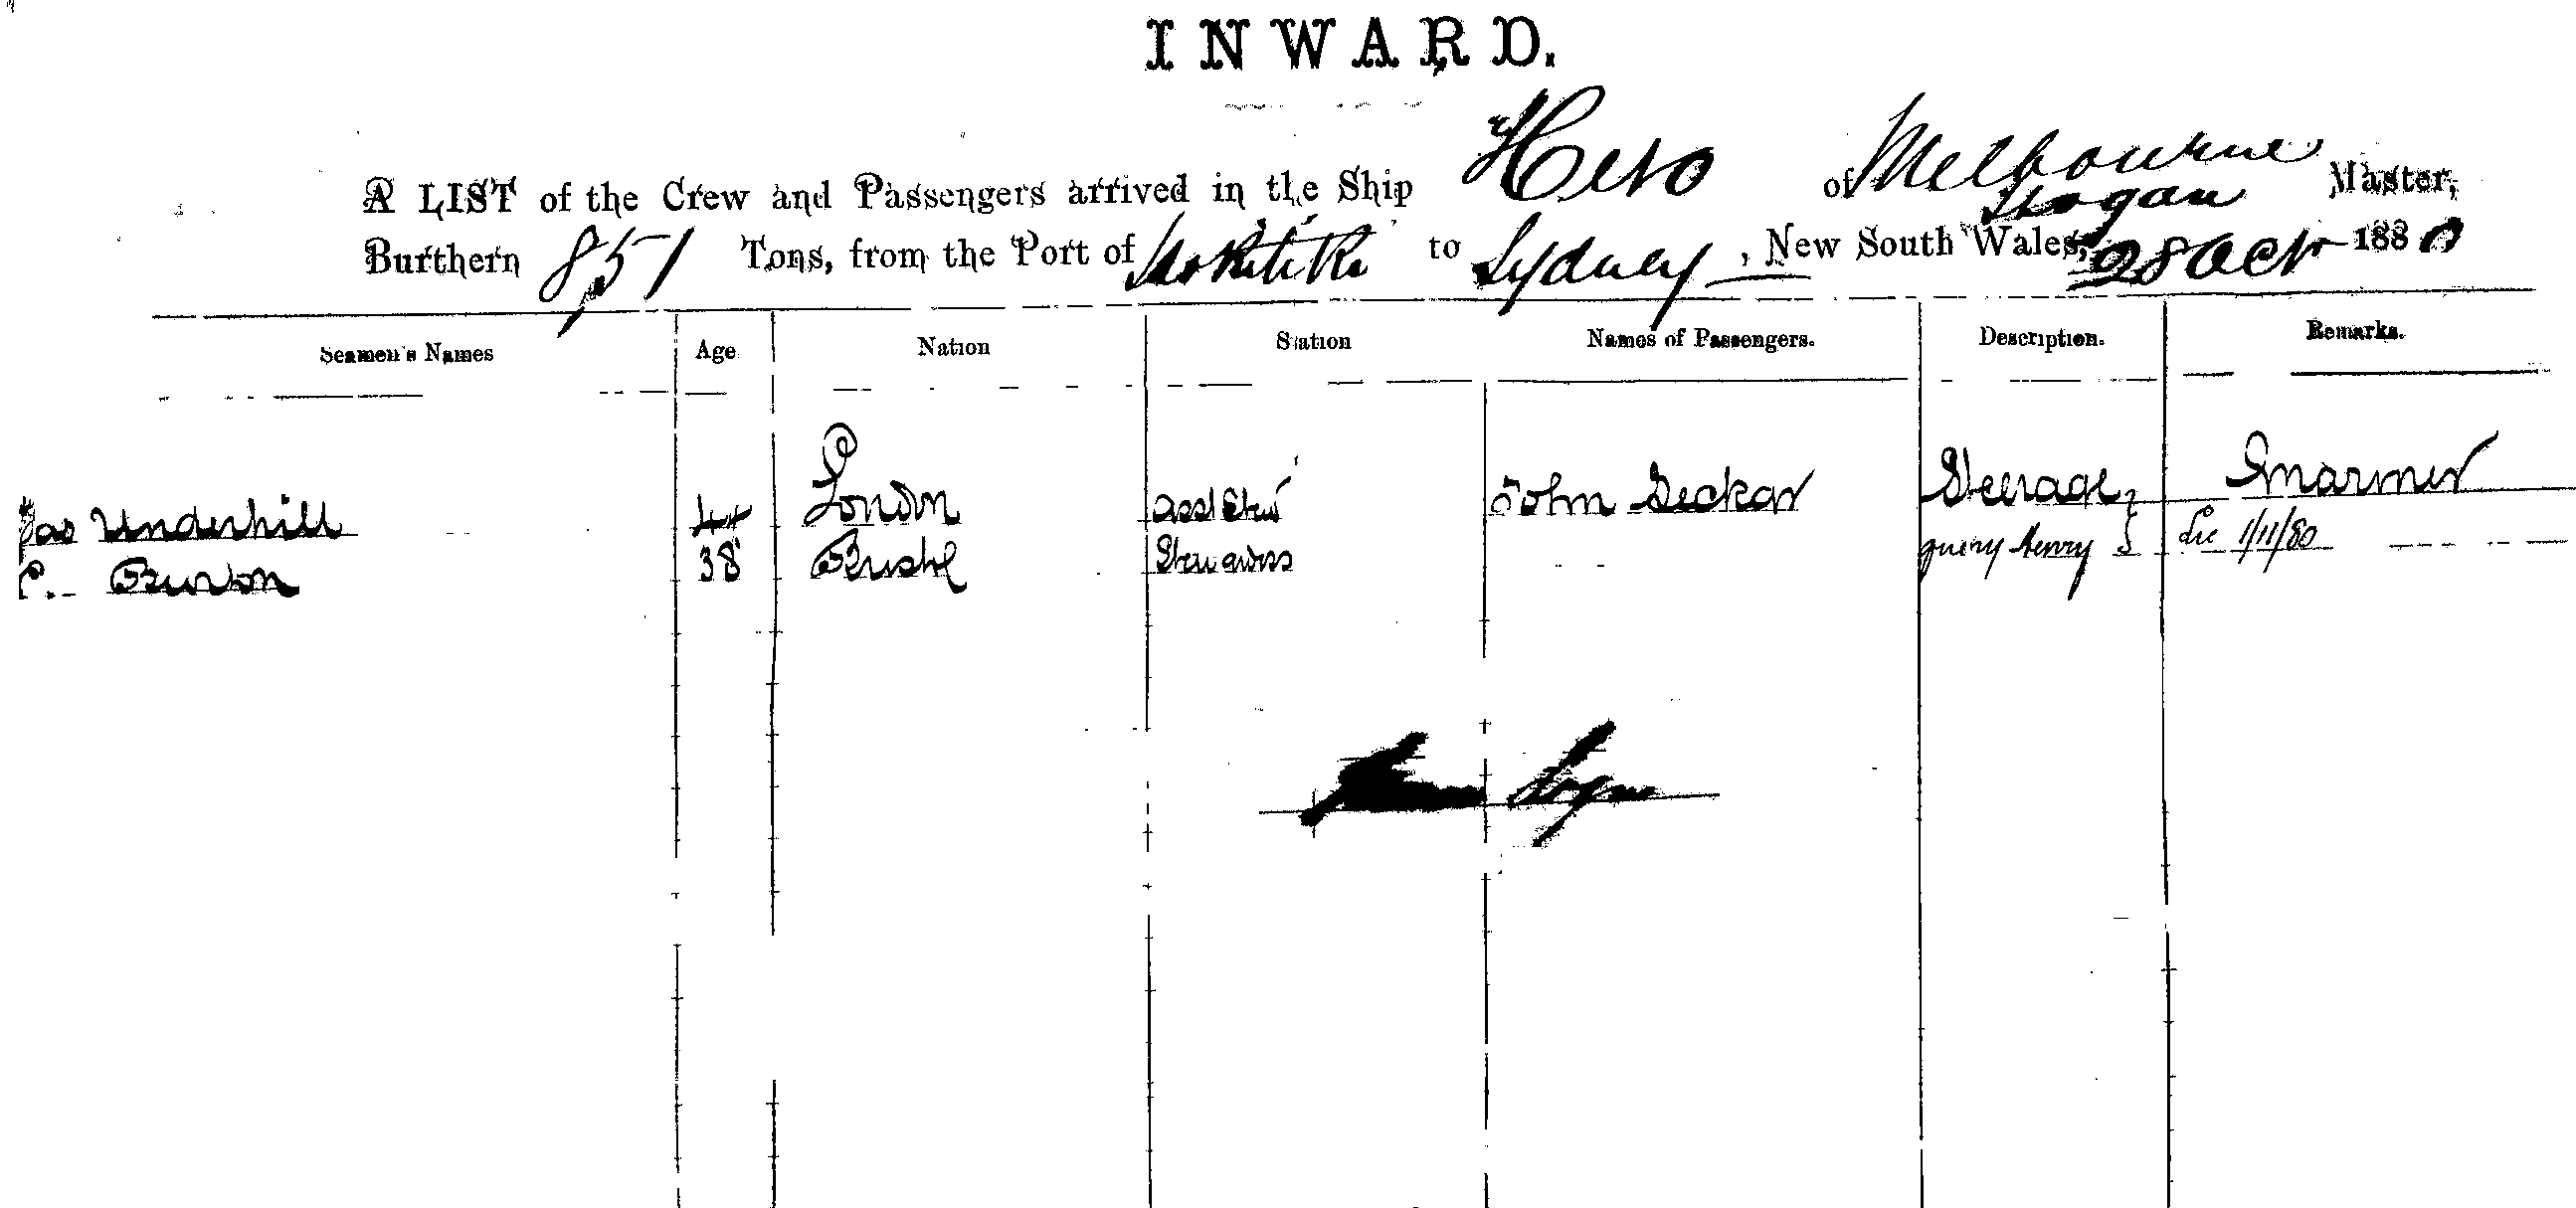 INWARD.
A LIST of the Crew and Passengers arrived in the Ship Hero of Melbourne
Logan Master,
Burthern 851 Tons, from the Port of Hokitika to Sydney, New South Wales, 28 Oct 1880
Seamen's Names Age Nation Station Names of Passengers. Description. Remarks.
Jas Underhill 44 London asst Stew John Deckar Steerage
C. Burton 38 Bristol Stewardess query henry dec 1/11/80
Logan